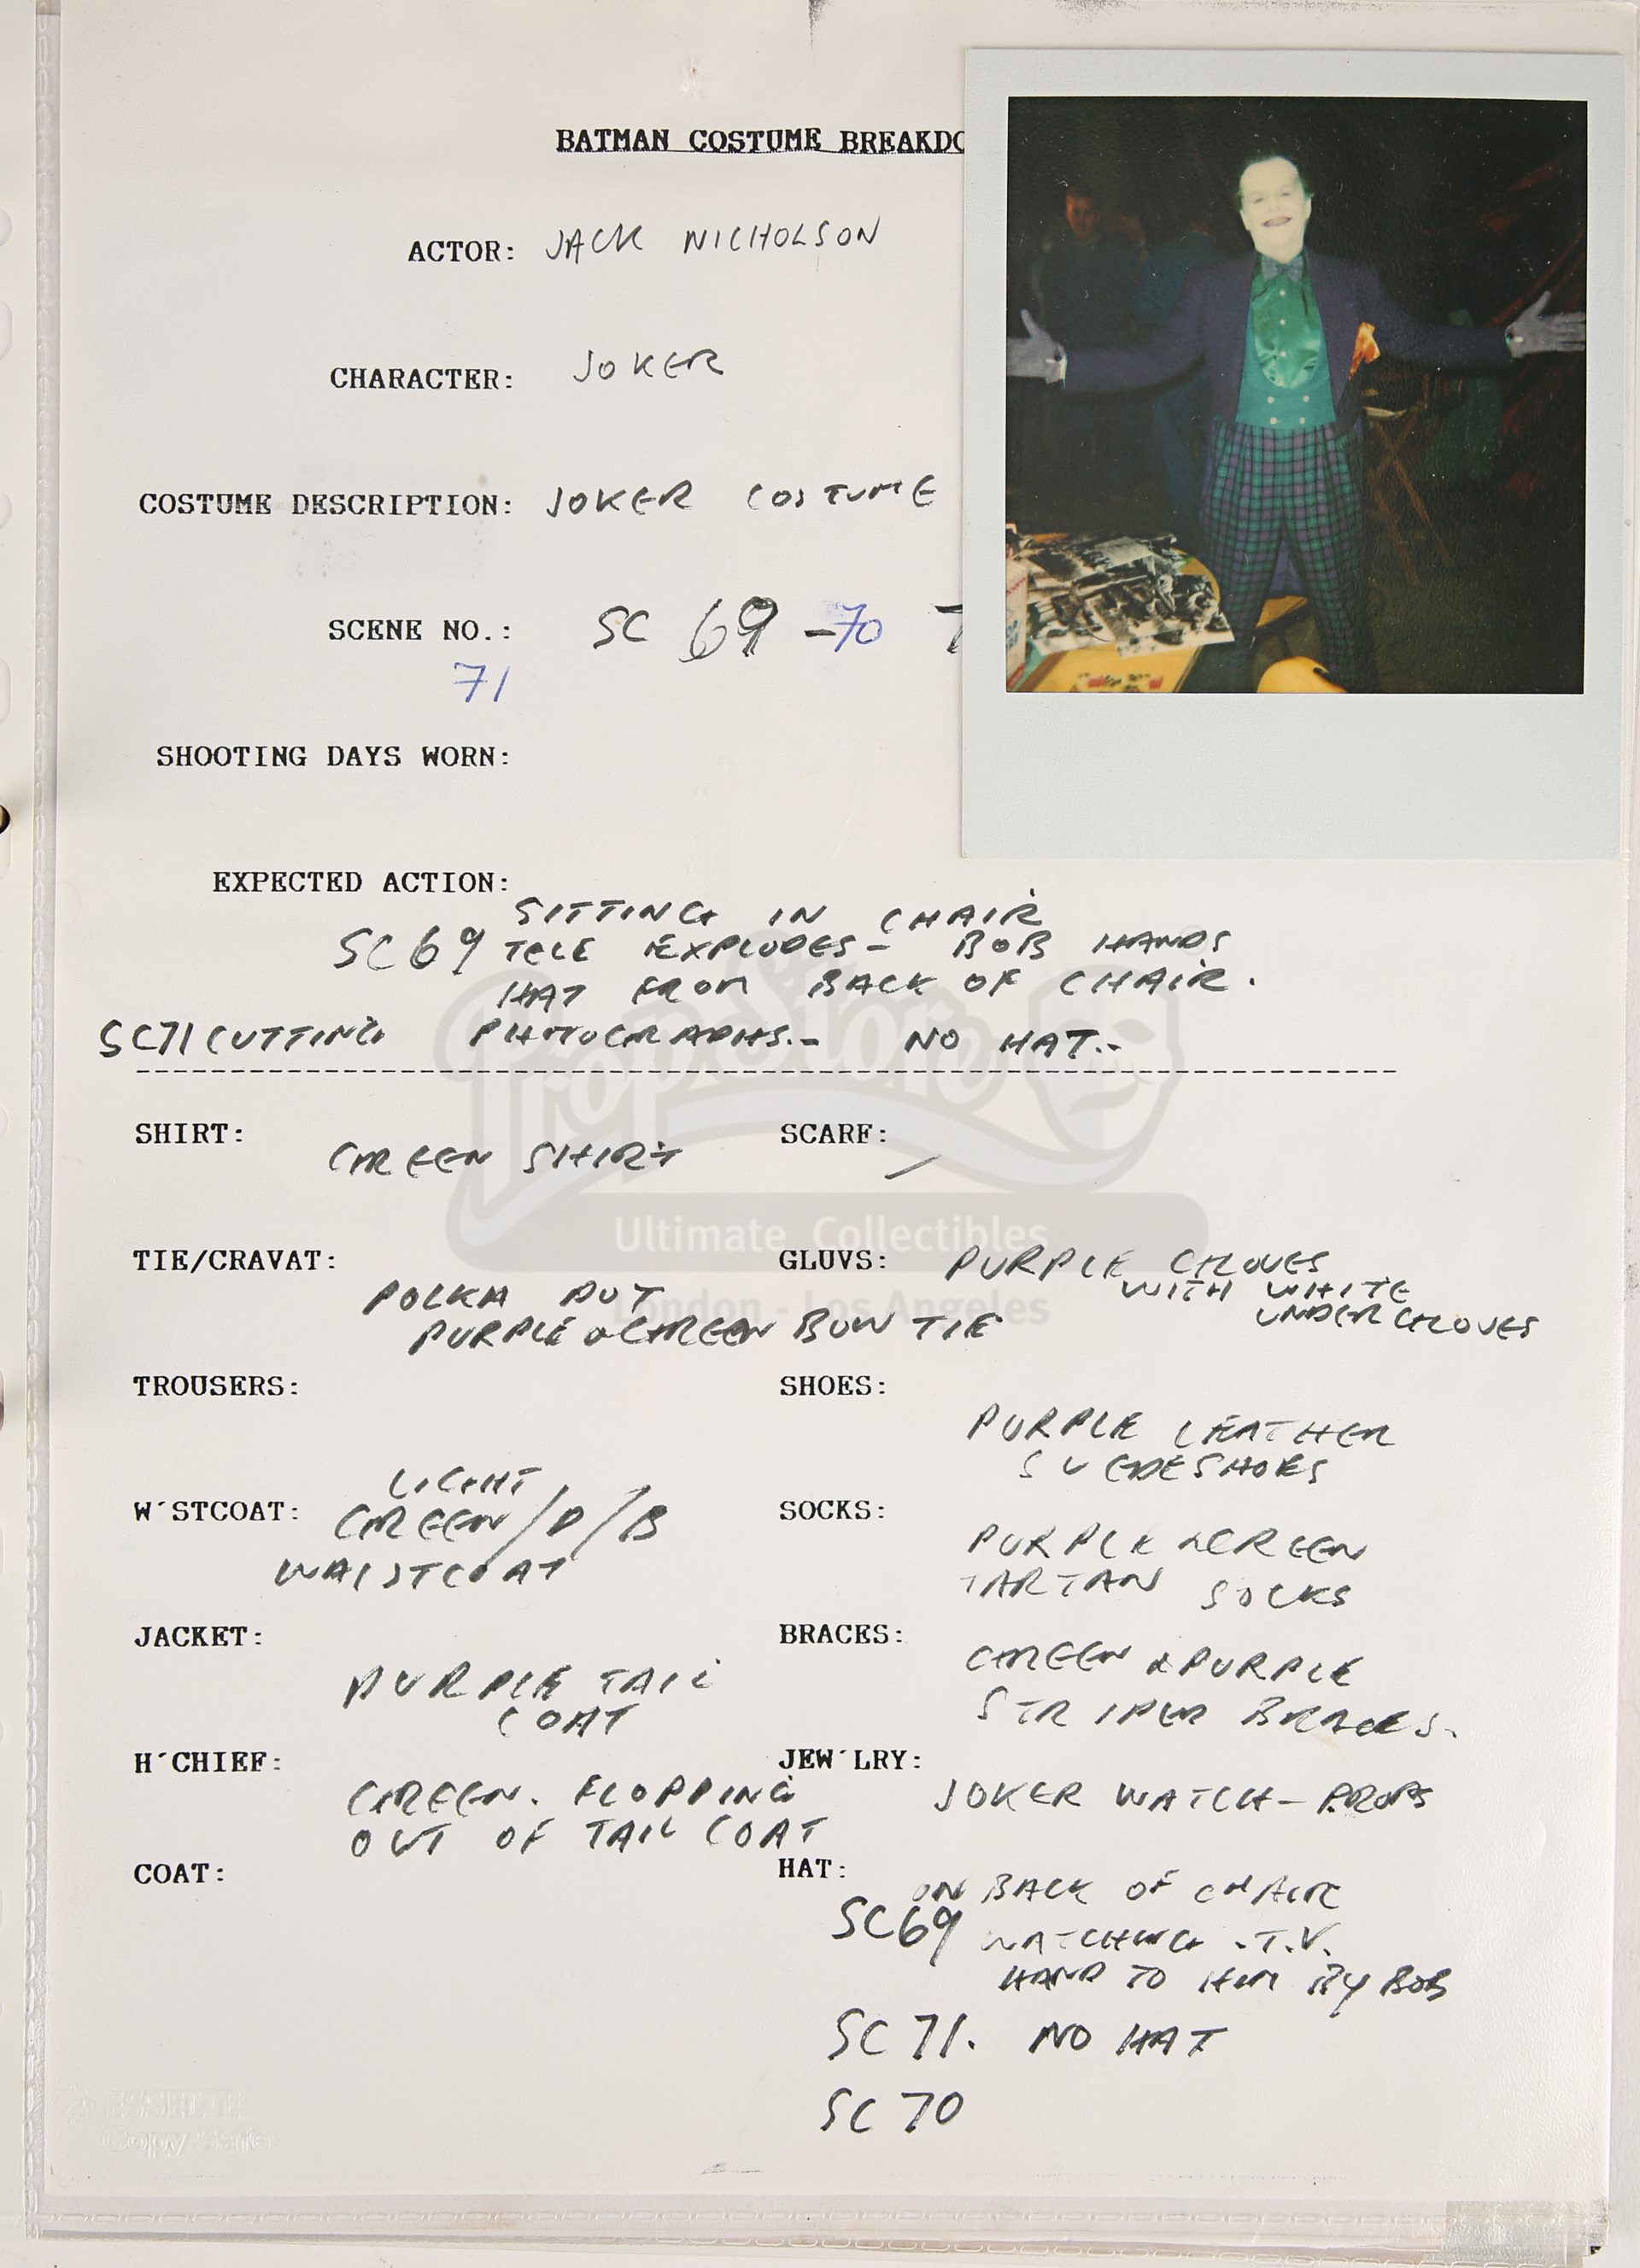 BATMAN COSTUME BREAKDO
ACTOR: JACK NICHOLSON
CHARACTER: JOKER
COSTUME DESCRIPTION: JOKER COSTUME
SCENE NO.: SC 69 -70 7
71
SHOOTING DAYS WORN:
EXPECTED ACTION:
SITTING IN CHAIR
SC69 TELE EXPLODES - BOB HANDS
HAT FROM BACK OF CHAIR.
SC71 CUTTING PHOTOGRAPHS.- NO HAT.-
SHIRT: GREEN SHIRT
SCARF: /
PropStore
Ultimate Collectibles
London - Los Angeles
TIE/CRAVAT:
POLKA DOT
PURPLE & GREEN BOW TIE
GLUVS: PURPLE GLOVES
WITH WHITE
UNDERGLOVES
TROUSERS:
SHOES:
PURPLE LEATHER
SUEDESHOES
W'STCOAT: LIGHT
GREEN/D/B
WAISTCOAT
SOCKS:
PURPLE & GREEN
TARTAN SOCKS
JACKET:
PURPLE TAIL
COAT
BRACES:
GREEN & PURPLE
STRIPED BRACES.
H'CHIEF:
GREEN. FLOPPING
OUT OF TAIL COAT
JEW'LRY:
JOKER WATCH - PROPS
COAT:
HAT:
ON BACK OF CHAIR
SC69 WATCHING .T.V.
HAND TO HIM BY BOB
SC 71. NO HAT
SC 70
ESSELTE
Copy Safe